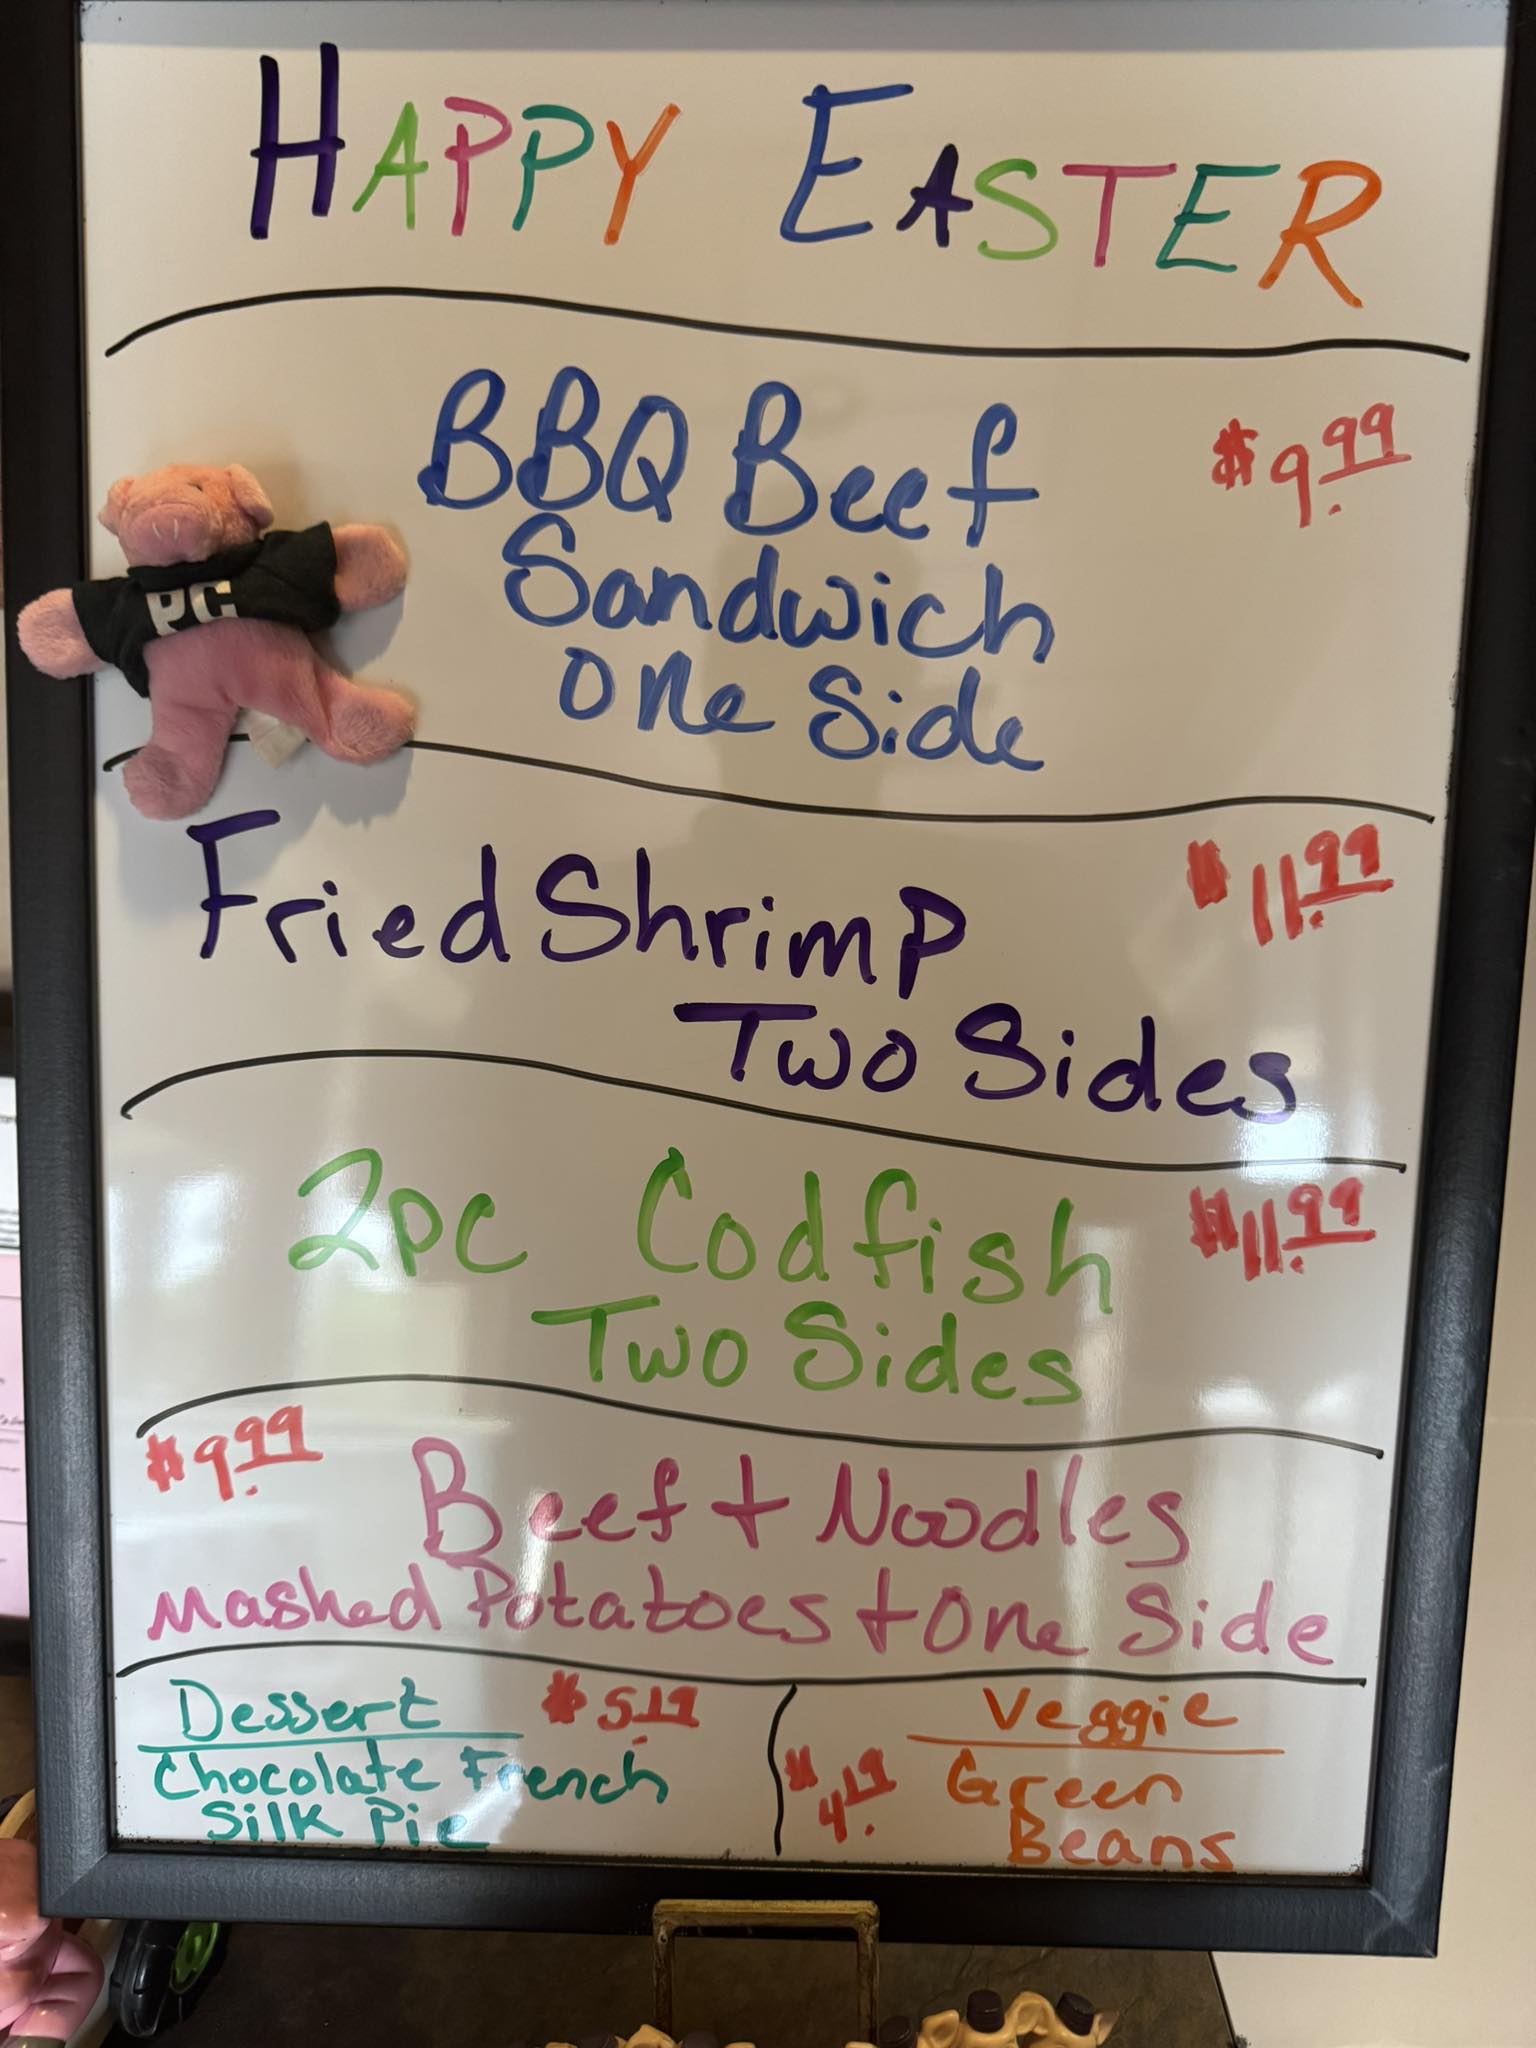 HAPPY EASTER
BBQ Beef $9.99
Sandwich
one Side
PC
Fried Shrimp $11.99
Two Sides
2pc Codfish $11.99
Two Sides
$9.99 Beef + Noodles
Mashed Potatoes + One Side
Dessert $5.19
Chocolate French
Silk Pie
Veggie
$4.19 Green
Beans